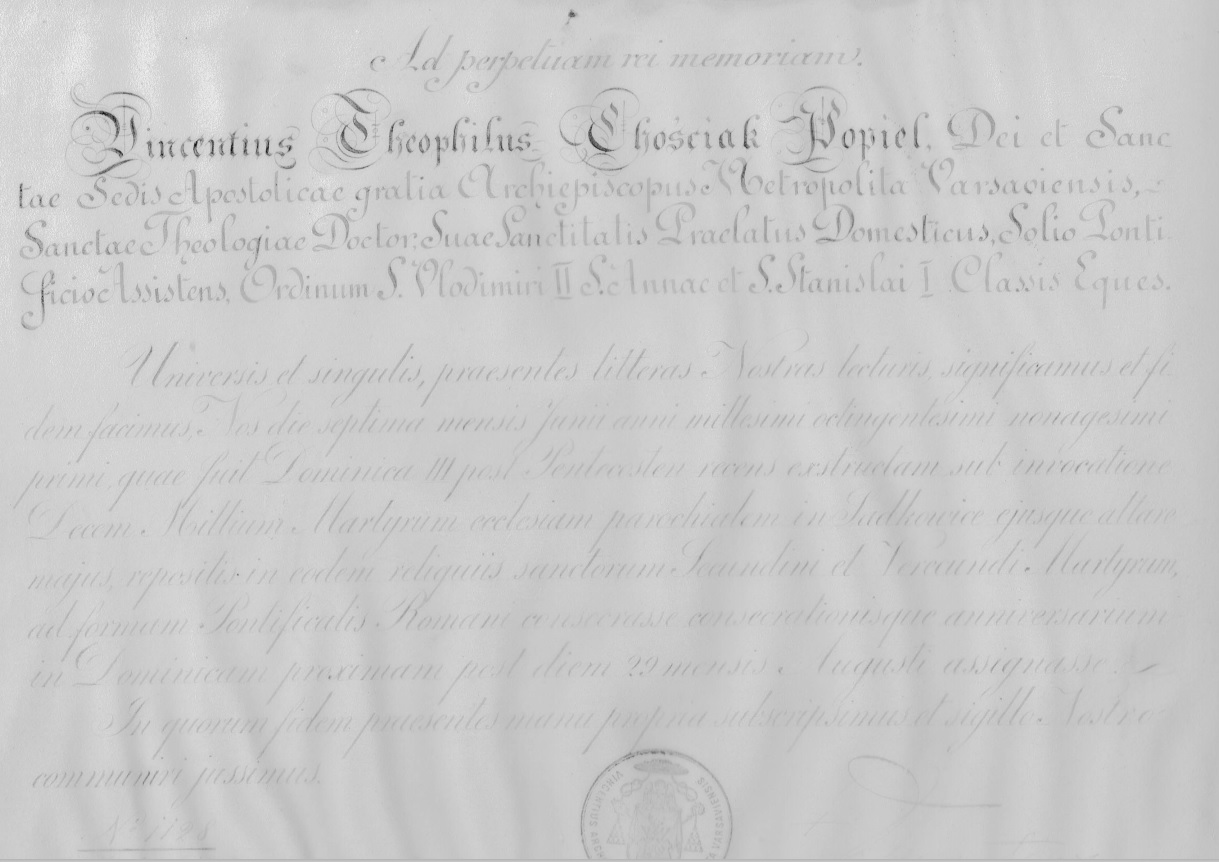 Ad perpetuam rei memoriam.
Vincentius Theophilus Chościak Popiel, Dei et Sanc
tae Sedis Apostolicae gratia Archiepiscopus Metropolita Varsaviensis,
Sanctae Theologiae Doctor, Suae Sanctitatis Praelatus Domesticus, Solio Ponti
ficio Assistens, Ordinum S. Vlodimiri II S. Annae et S. Stanislai I Classis Eques.
Universis et singulis, praesentes litteras Nostras lecturis, significamus et fi
dem facimus, Nos die septima mensis Junii anni millesimi octingentesimi nonagesimi
primi, quae fuit Dominica III post Pentecosten recens exstructam sub invocatione
Decem Millium Martyrum ecclesiam parochialem in Sadkowice ejusque altare
majus, repositis in eodem reliquiis sanctorum Secundini et Verecundi Martyrum,
ad formam Pontificalis Romani consecrasse consecrationisque anniversarium
in Dominicam proximam post diem 29 mensis Augusti assignasse.
In quorum fidem praesentes manu propria subscripsimus et sigillo Nostro
communiri jussimus.
VINCENTIUS
VARSAVIENSIS